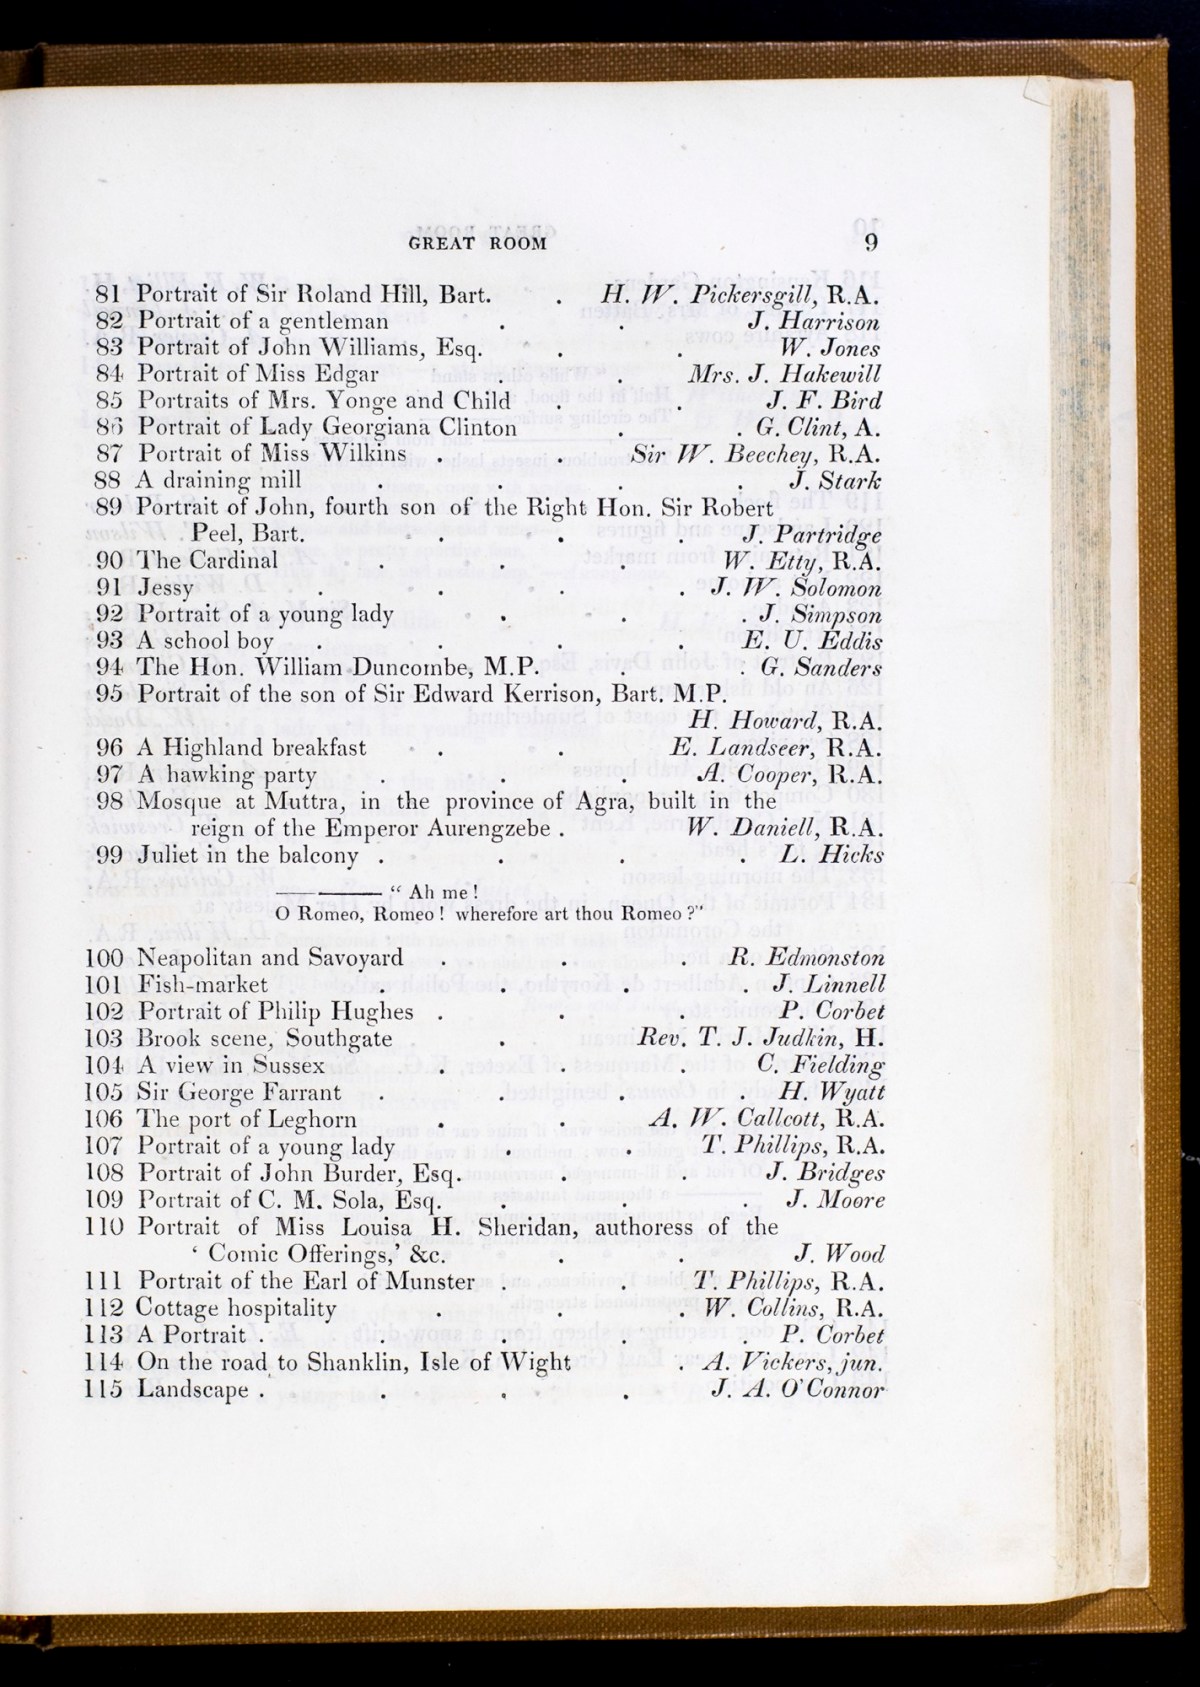 GREAT ROOM 9
81 Portrait of Sir Roland Hill, Bart. . H. W. Pickersgill, R.A.
82 Portrait of a gentleman . . J. Harrison
83 Portrait of John Williams, Esq. . . W. Jones
84 Portrait of Miss Edgar . . Mrs. J. Hakewill
85 Portraits of Mrs. Yonge and Child . . J. F. Bird
86 Portrait of Lady Georgiana Clinton . . G. Clint, A.
87 Portrait of Miss Wilkins . . Sir W. Beechey, R.A.
88 A draining mill . . . . J. Stark
89 Portrait of John, fourth son of the Right Hon. Sir Robert
Peel, Bart. . . . J. Partridge
90 The Cardinal . . . W. Etty, R.A.
91 Jessy . . . . J. W. Solomon
92 Portrait of a young lady . . . J. Simpson
93 A school boy . . . . E. U. Eddis
94 The Hon. William Duncombe, M.P. . . G. Sanders
95 Portrait of the son of Sir Edward Kerrison, Bart. M.P.
H. Howard, R.A.
96 A Highland breakfast . . E. Landseer, R.A.
97 A hawking party . . . A. Cooper, R.A.
98 Mosque at Muttra, in the province of Agra, built in the
reign of the Emperor Aurengzebe . W. Daniell, R.A.
99 Juliet in the balcony . . . . L. Hicks
——— “ Ah me !
O Romeo, Romeo ! wherefore art thou Romeo ?”
100 Neapolitan and Savoyard . . . R. Edmonston
101 Fish-market . . . . J. Linnell
102 Portrait of Philip Hughes . . . P. Corbet
103 Brook scene, Southgate . Rev. T. J. Judkin, H.
104 A view in Sussex . . . C. Fielding
105 Sir George Farrant . . . . H. Wyatt
106 The port of Leghorn . . A. W. Callcott, R.A.
107 Portrait of a young lady . . T. Phillips, R.A.
108 Portrait of John Burder, Esq. . . J. Bridges
109 Portrait of C. M. Sola, Esq. . . J. Moore
110 Portrait of Miss Louisa H. Sheridan, authoress of the
‘ Comic Offerings,’ &c. . . J. Wood
111 Portrait of the Earl of Munster . . T. Phillips, R.A.
112 Cottage hospitality . . . W. Collins, R.A.
113 A Portrait . . . . . P. Corbet
114 On the road to Shanklin, Isle of Wight . A. Vickers, jun.
115 Landscape . . . . J. A. O'Connor